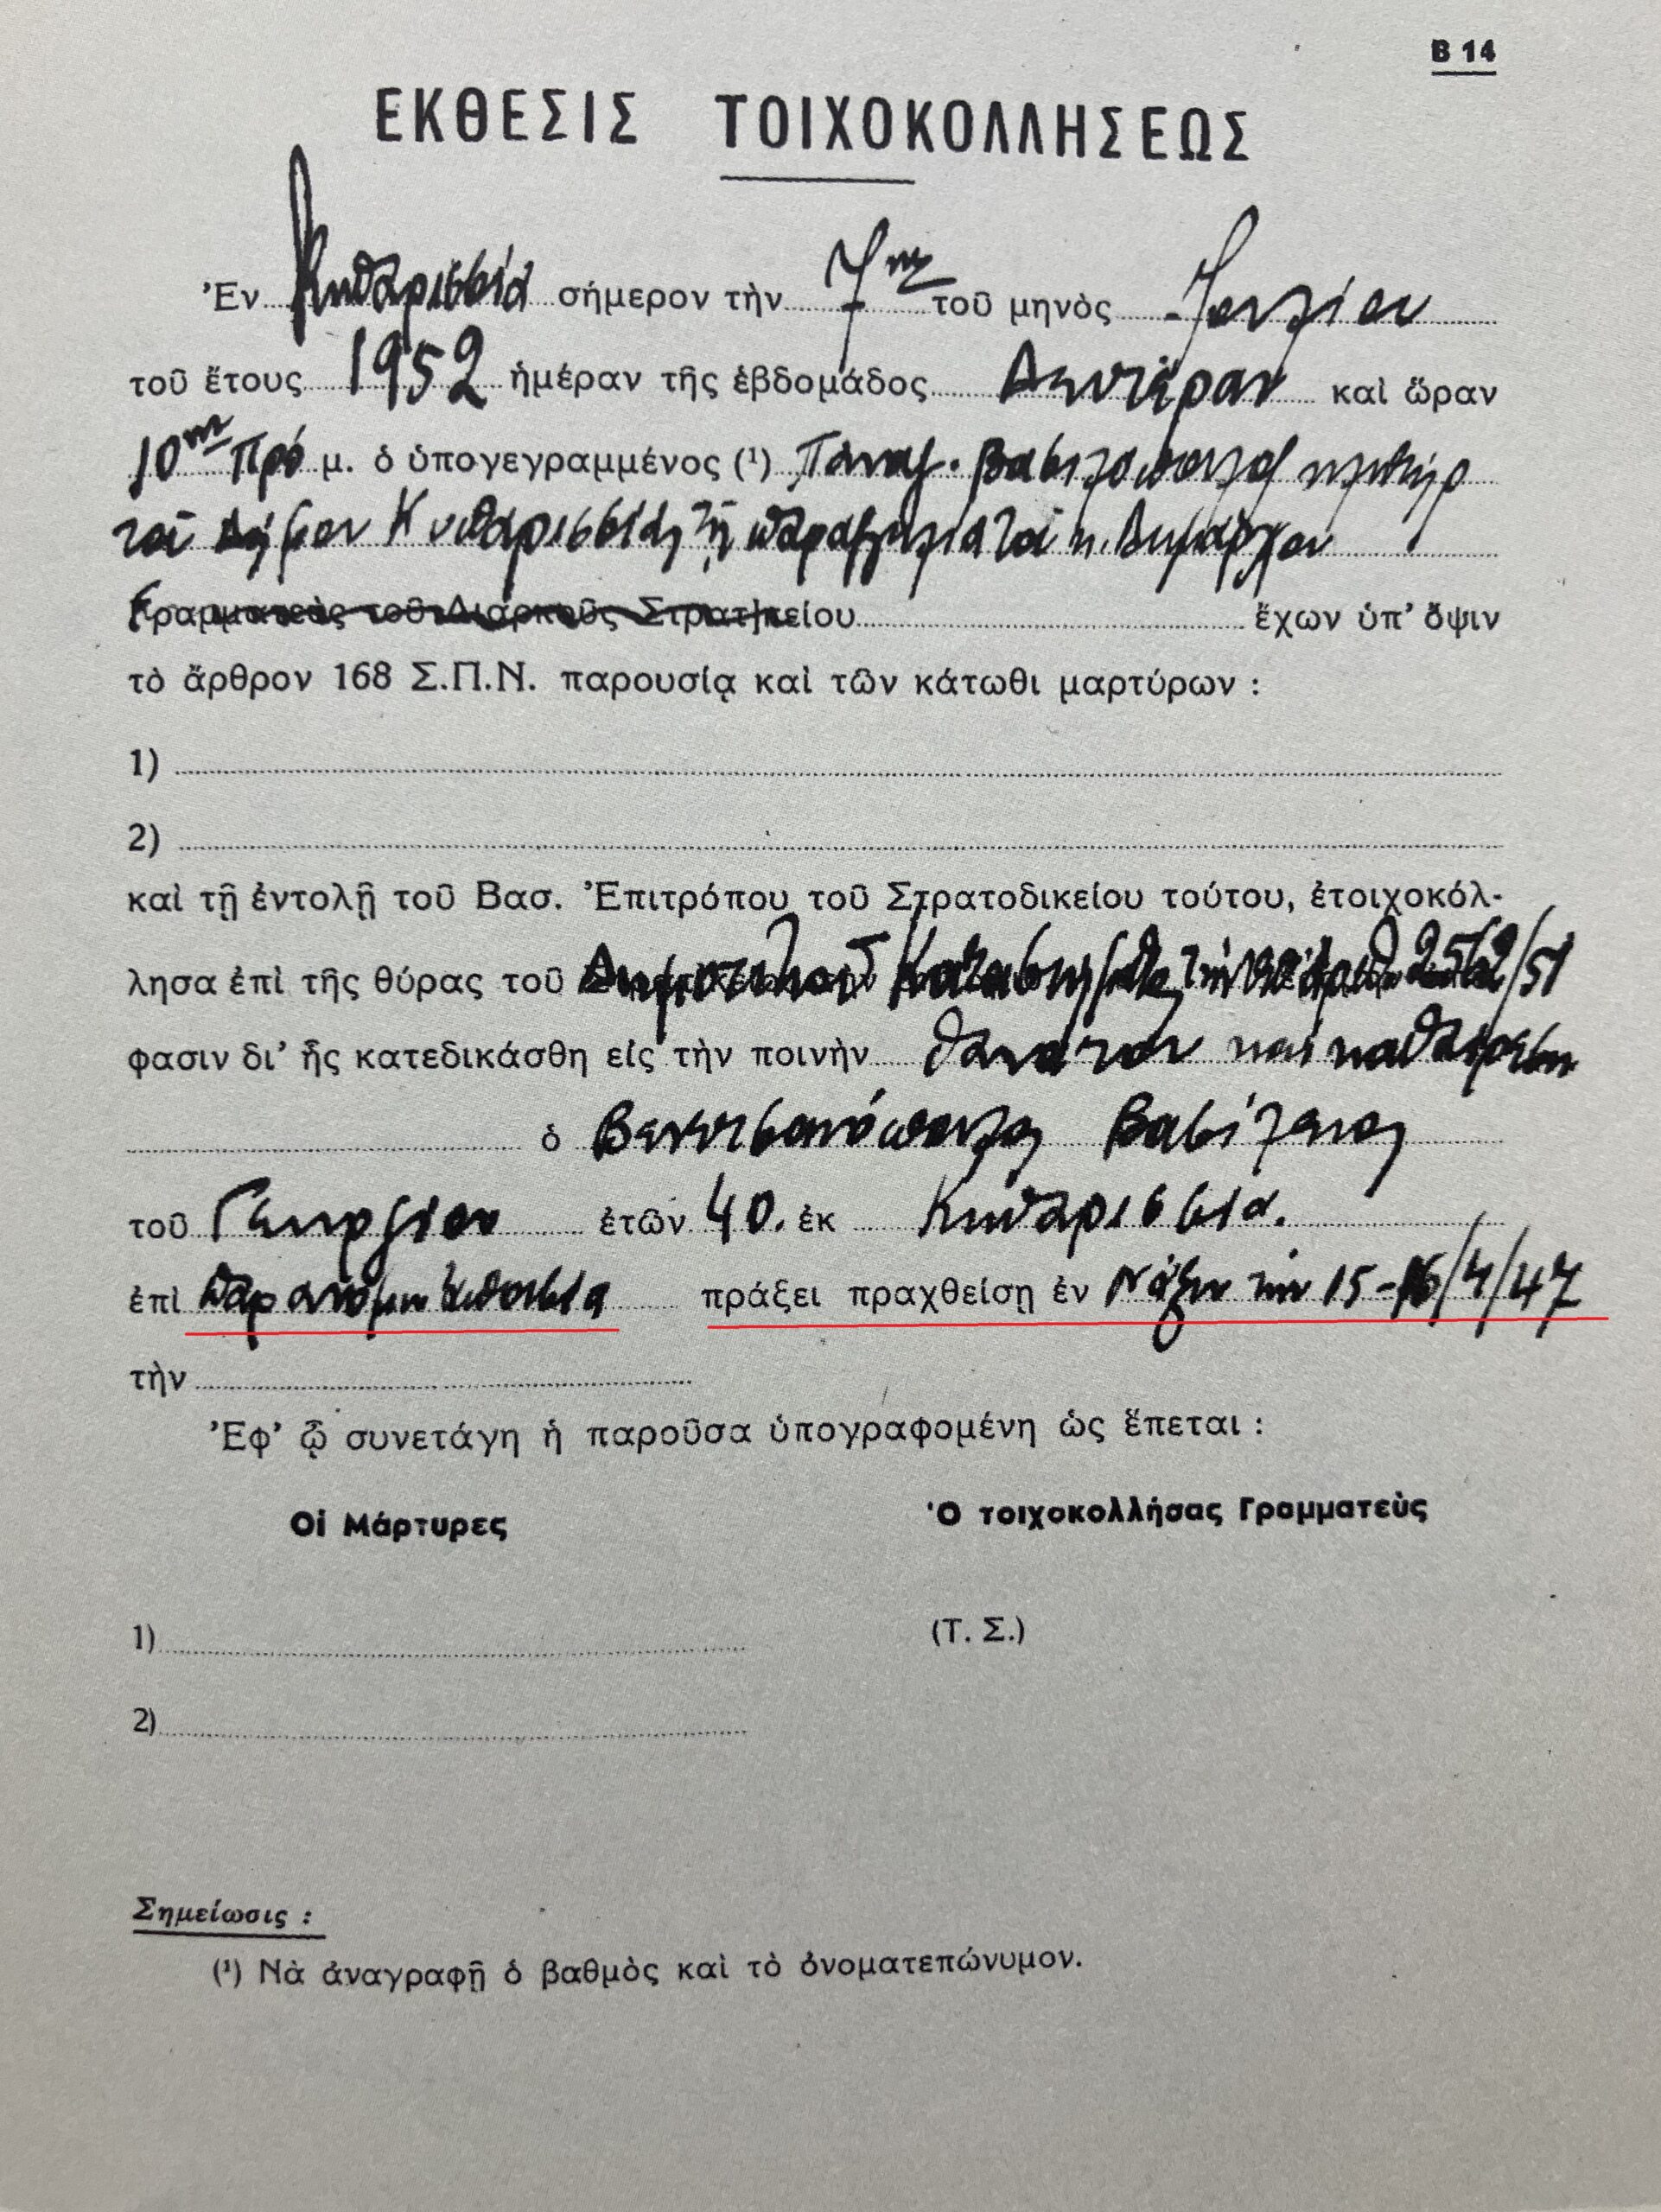 Β 14
ΕΚΘΕΣΙΣ ΤΟΙΧΟΚΟΛΛΗΣΕΩΣ
Ἐν Κυπαρισσίᾳ σήμερον τὴν 7ην τοῦ μηνὸς Ἰουλίου
τοῦ ἔτους 1952 ἡμέραν τῆς ἑβδομάδος Δευτέραν καὶ ὥραν
10ην Πρό μ. ὁ ὑπογεγραμμένος (¹) Παναγ. Βασιλόπουλος κλητήρ
τοῦ Δήμου Κυπαρισσίας τῇ παραγγελίᾳ τοῦ κ. Δημάρχου
Γραμματεὺς τοῦ Διαρκοῦς Στρατ]κείου ἔχων ὑπ' ὄψιν
τὸ ἄρθρον 168 Σ.Π.Ν. παρουσίᾳ καὶ τῶν κάτωθι μαρτύρων :
1)
2)
καὶ τῇ ἐντολῇ τοῦ Βασ. Ἐπιτρόπου τοῦ Στρατοδικείου τούτου, ἐτοιχοκόλ-
λησα ἐπὶ τῆς θύρας τοῦ Δημοτικοῦ Καταστήματος τὴν ὑπ' ἀριθ 2562/51
φασιν δι' ἧς κατεδικάσθη εἰς τὴν ποινὴν θανάτου καὶ καθαίρεσιν
ὁ Βενετσανόπουλος Βασίλειος
τοῦ Γεωργίου ἐτῶν 40. ἐκ Κυπαρισσία.
ἐπὶ παρανόμῳ ἀπουσίᾳ πράξει πραχθείσῃ ἐν Νάξῳ τὴν 15-16/4/47
τὴν
Ἐφ' ᾧ συνετάγη ἡ παροῦσα ὑπογραφομένη ὡς ἕπεται :
Οἱ Μάρτυρες Ὁ τοιχοκολλήσας Γραμματεὺς
1) (Τ. Σ.)
2)
Σημείωσις :
(¹) Νὰ ἀναγραφῇ ὁ βαθμὸς καὶ τὸ ὀνοματεπώνυμον.